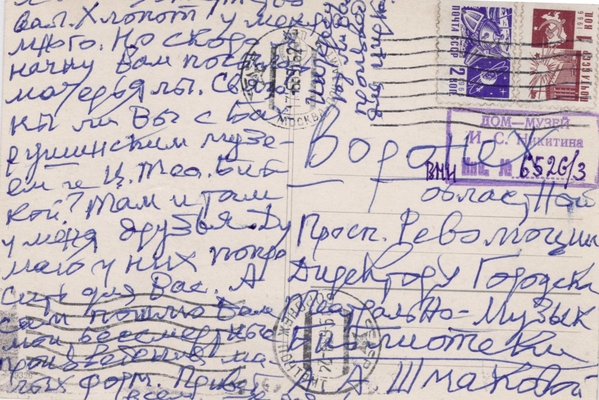 Вам. Хлопот у меня
много. Но скоро
начну Вам посы
матерьялы. Связа
ны ли Вы с Ба
рушинским музе-
ем и Ц. Теа. Биб
кой? Там и там
у меня друзья. Ду
маю у них попро
сить для Вас. А
сам пошлю Вам
мои бессмертные
произведения ма-
лых форм. Привет
всем
ПОЧТА СССР
2 КОП
1966
ПОЧТА СССР
1 КОП
МОСКВА
ДОМ-МУЗЕЙ
И. С. НИКИТИНА
Инв. №
ВНИ 6520/3
Воронеж
областной
Просп. Революции
Директору Городска
Театрально-Музык
Библиотеки
А. А. Шмаковой